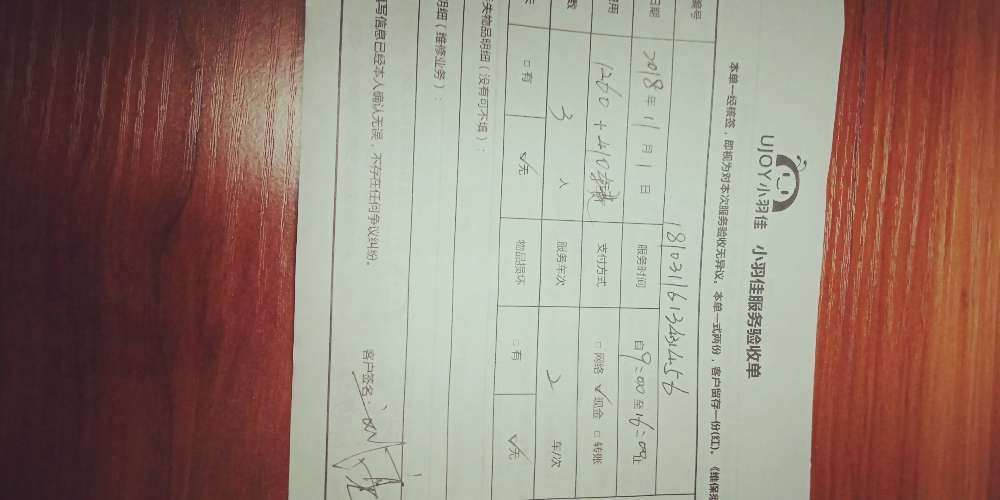 UJOY小羽佳 小羽佳服务验收单
本单一经核签，即视为对本次服务验收无异议。本单一式两份，客户留存一份(红)。《维保
编号
日期 2018年11月1日 服务时间 自9:00至16:00止
用 1260+410 支付方式 □网络 ✓现金 □转账
数 3人 服务车次 2 车/次
□有 ✓无 物品损坏 □有 ✓无
失物品明细（没有可不填）：
明细（维修业务）：
写信息已经本人确认无误，不存在任何争议纠纷。
客户签名：